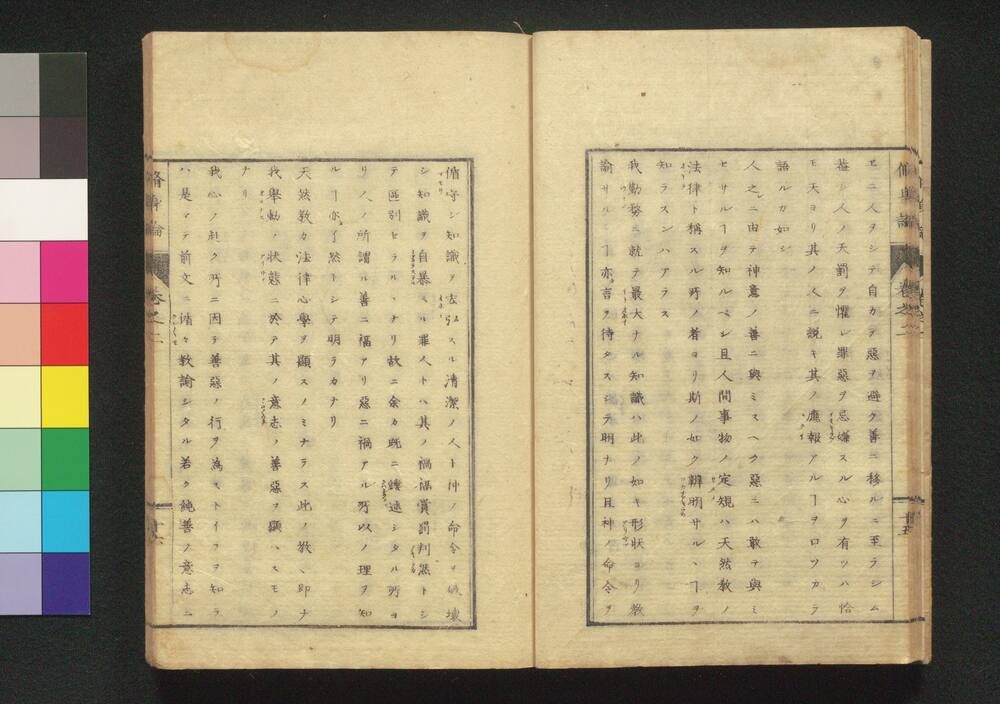 セニ人ヲシテ自カラ惡ヲ避ケ善ニ移ルニ至ラシム
蓋シ人ノ天罰ヲ懼レ罪惡ヲ忌嫌スル心ヲ有ツハ恰
モ天ヨリ其ノ人ニ説キ其ノ應報アルヿヲ口ツカラ
語ルカ如シ
人之ニ由テ神意ノ善ニ與ミスヘク惡ニハ敢テ與ミ
セサルヿヲ知ルベシ且人間事物ノ定規ハ天然教ノ
法律ト稱スル所ノ者ヨリ斯ノ如ク辨明サルヽヿヲ
知ラスンハアラス
我勤務ニ就テ最大ナル知識ハ此ノ如キ形狀ヨリ教
諭サルヽヿ亦言ヲ待タスシテ明ナリ且神ノ命令ヲ
脩身論 卷之二 十五
循守シ知識ヲ スル清潔ノ人ト神ノ命令ヲ破壞
シ知識ヲ自暴スル罪人トハ其ノ禍福賞罰判然トシ
テ區別セラルヽナリ故ニ余カ既ニ縷述シタル所ヨ
リ人ノ所謂ル善ニ福アリ惡ニ禍アル所以ノ理ヲ知
ルヿ亦了然トシテ明ラカナリ
天然教カ法律心學ヲ顯スノミナラス此ノ教ヽ即ナ
我擧動ノ狀態ニ於テ其ノ意志ノ善惡ヲ顯ハスモノ
ナリ
我心ノ赴ク所ニ因テ善惡ノ行ヲ為ストイフヲ知ラ
ハ是マテ前文ニ循々教諭シタル若ク純善ノ意志ニ
脩身論 卷之二 十六